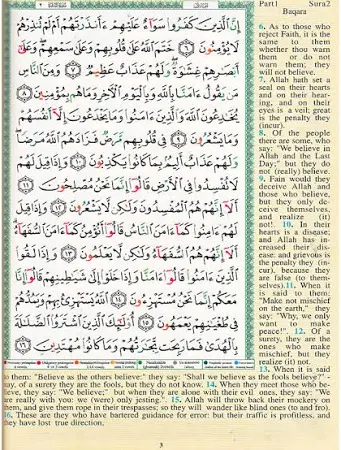 Part1 Sura2
Baqara
إِنَّ الَّذِينَ كَفَرُوا سَوَاءٌ عَلَيْهِمْ ءَأَنذَرْتَهُمْ أَمْ لَمْ تُنذِرْهُمْ
لَا يُؤْمِنُونَ ٦ خَتَمَ اللَّهُ عَلَى قُلُوبِهِمْ وَعَلَى سَمْعِهِمْ وَعَلَى
أَبْصَارِهِمْ غِشَاوَةٌ وَلَهُمْ عَذَابٌ عَظِيمٌ ٧ وَمِنَ النَّاسِ
مَن يَقُولُ ءَامَنَّا بِاللَّهِ وَبِالْيَوْمِ الْآخِرِ وَمَا هُم بِمُؤْمِنِينَ ٨
يُخَادِعُونَ اللَّهَ وَالَّذِينَ ءَامَنُوا وَمَا يَخْدَعُونَ إِلَّا أَنفُسَهُمْ
وَمَا يَشْعُرُونَ ٩ فِي قُلُوبِهِم مَّرَضٌ فَزَادَهُمُ اللَّهُ مَرَضًا
وَلَهُمْ عَذَابٌ أَلِيمٌ بِمَا كَانُوا يَكْذِبُونَ ١٠ وَإِذَا قِيلَ لَهُمْ
لَا تُفْسِدُوا فِي الْأَرْضِ قَالُوا إِنَّمَا نَحْنُ مُصْلِحُونَ ١١
أَلَا إِنَّهُمْ هُمُ الْمُفْسِدُونَ وَلَكِن لَّا يَشْعُرُونَ ١٢ وَإِذَا قِيلَ
لَهُمْ ءَامِنُوا كَمَا ءَامَنَ النَّاسُ قَالُوا أَنُؤْمِنُ كَمَا ءَامَنَ السُّفَهَاءُ
أَلَا إِنَّهُمْ هُمُ السُّفَهَاءُ وَلَكِن لَّا يَعْلَمُونَ ١٣ وَإِذَا لَقُوا
الَّذِينَ ءَامَنُوا قَالُوا ءَامَنَّا وَإِذَا خَلَوْا إِلَى شَيَاطِينِهِمْ قَالُوا إِنَّا
مَعَكُمْ إِنَّمَا نَحْنُ مُسْتَهْزِءُونَ ١٤ اللَّهُ يَسْتَهْزِئُ بِهِمْ وَيَمُدُّهُمْ
فِي طُغْيَانِهِمْ يَعْمَهُونَ ١٥ أُولَئِكَ الَّذِينَ اشْتَرَوُا الضَّلَالَةَ
بِالْهُدَى فَمَا رَبِحَت تِّجَارَتُهُمْ وَمَا كَانُوا مُهْتَدِينَ ١٦
6. As to those who
reject Faith, it is the
same to them
whether thou warn
them or do not
warn them; they
will not believe.
7. Allah hath set a
seal on their hearts
and on their hear-
ing, and on their
eyes is a veil; great
is the penalty they
(incur).
8. Of the people
there are some, who
say: "We believe in
Allah and the Last
Day;" but they do
not (really) believe.
9. Fain would they
deceive Allah and
those who believe,
but they only de-
ceive themselves,
and realize (it)
not!. 10. In their
hearts is a disease;
and Allah has in-
creased their dis-
ease: and grievous is
the penalty they (in-
cur), because they
are false (to them-
selves).11. When it
is said to them:
"Make not mischief
on the earth," they
say: "Why, we only
want to make
peace!". 12. Of a
surety, they are the
ones who make
mischief, but they
realize (it) not.
13. When it is said
to them: "Believe as the others believe:" they say: "Shall we believe as the fools believe?" -
nay, of a surety they are the fools, but they do not know. 14. When they meet those who be-
lieve, they say: "We believe;" but when they are alone with their evil ones, they say: "We
are really with you: we (were) only jesting.". 15. Allah will throw back their mockery on
them, and give them rope in their trespasses; so they will wander like blind ones (to and fro).
16. These are they who have bartered guidance for error: but their traffic is profitless, and
they have lost true direction,
3